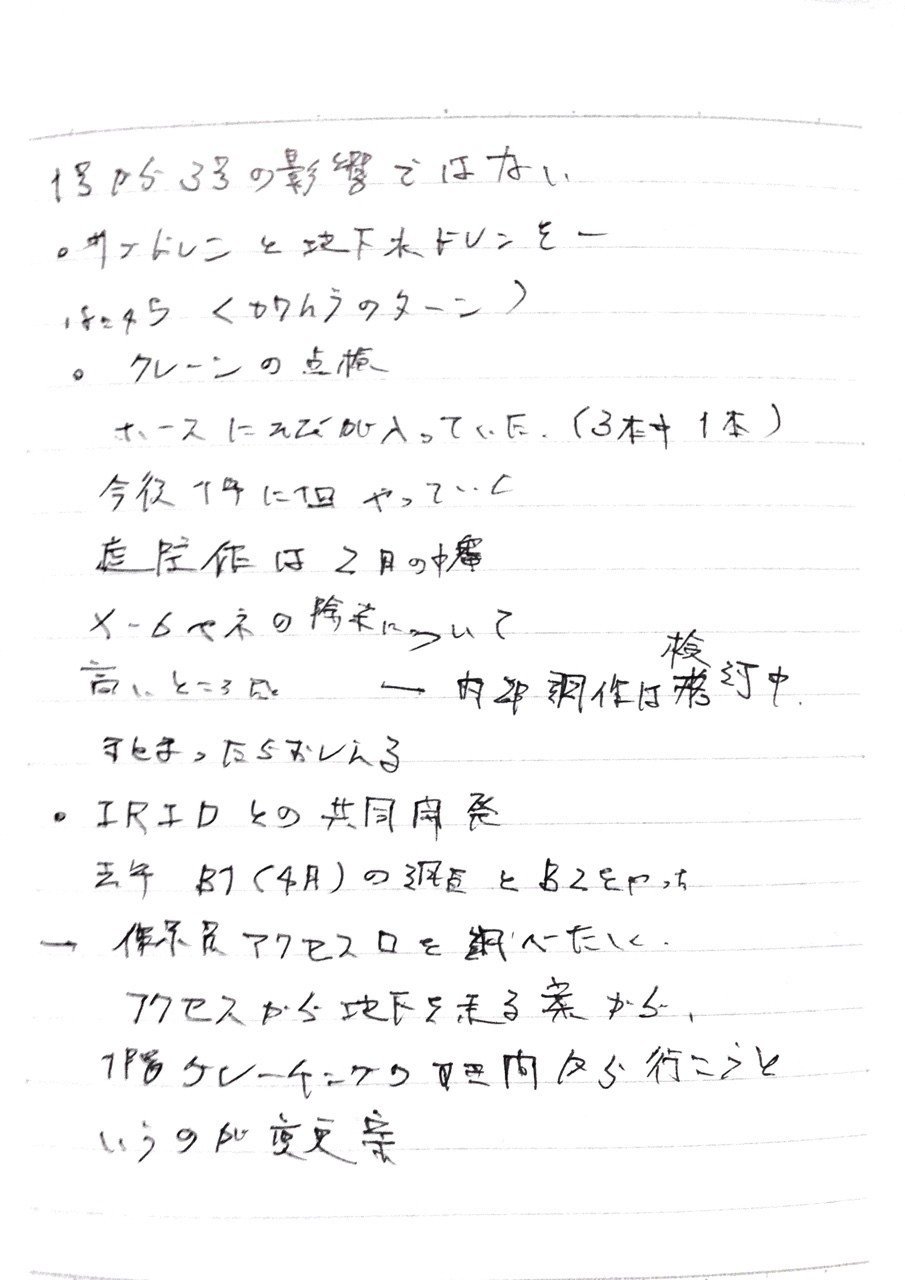 1号から3号の影響ではない
・サブドレンと地下水ドレンを一
クレーンの点検
ホースにひびが入っていた.(3本中1本)
今後1年に1回やっていく
は2月の中盤
X-6ペネの除染について
高いところ
→ 内部調作は検討中.
まったらおしえる
・IRIDとの共同開発
去年 B1(4月)の調査とB2をやった
→ 作業員アクセス口を調べたい.
アクセスから地下を走る案から、
1階グレーチングの 間から行こうと
いうのが変更案